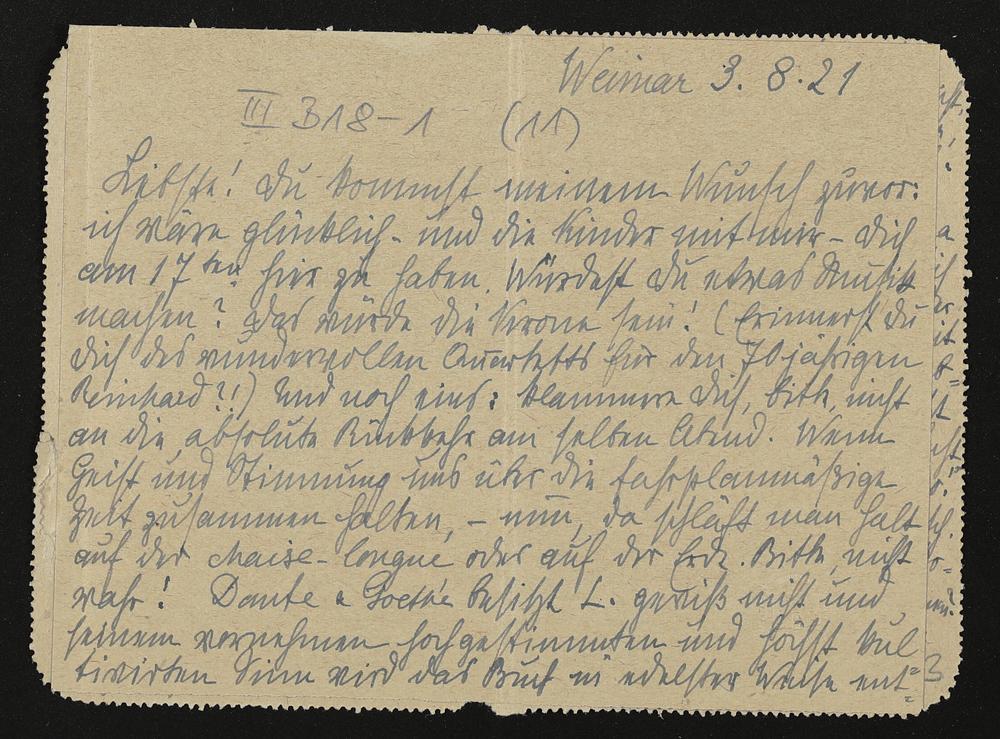 Weimar 3. 8. 21
III B18-1 (11)
Liebste! Du kommst meinem Wunsch zuvor:
ich wäre glücklich - und die Kinder mit mir - Dich
am 17ten hier zu haben. Würdest Du etwas Musik
machen? Das würde die Krone sein! (Erinnerst Du
Dich des wundervollen Quartetts für den 70jährigen
Reinhard?!) Und noch eins: klammere Dich, bitte, nicht
an die absolute Rückkehr am selben Abend. Wenn
Geist und Stimmung uns über die fahrplanmäßige
Zeit zusammen halten, - nun, da schläft man halt
auf der chaise-longue oder auf der Erde. Bitte, nicht
wahr! Dante u Goethe besitzt L. gewiß nicht und
seinem vornehmen hochgestimmten und höchst kul
tivirten Sinn wird das Buch in edelster Weise ent=